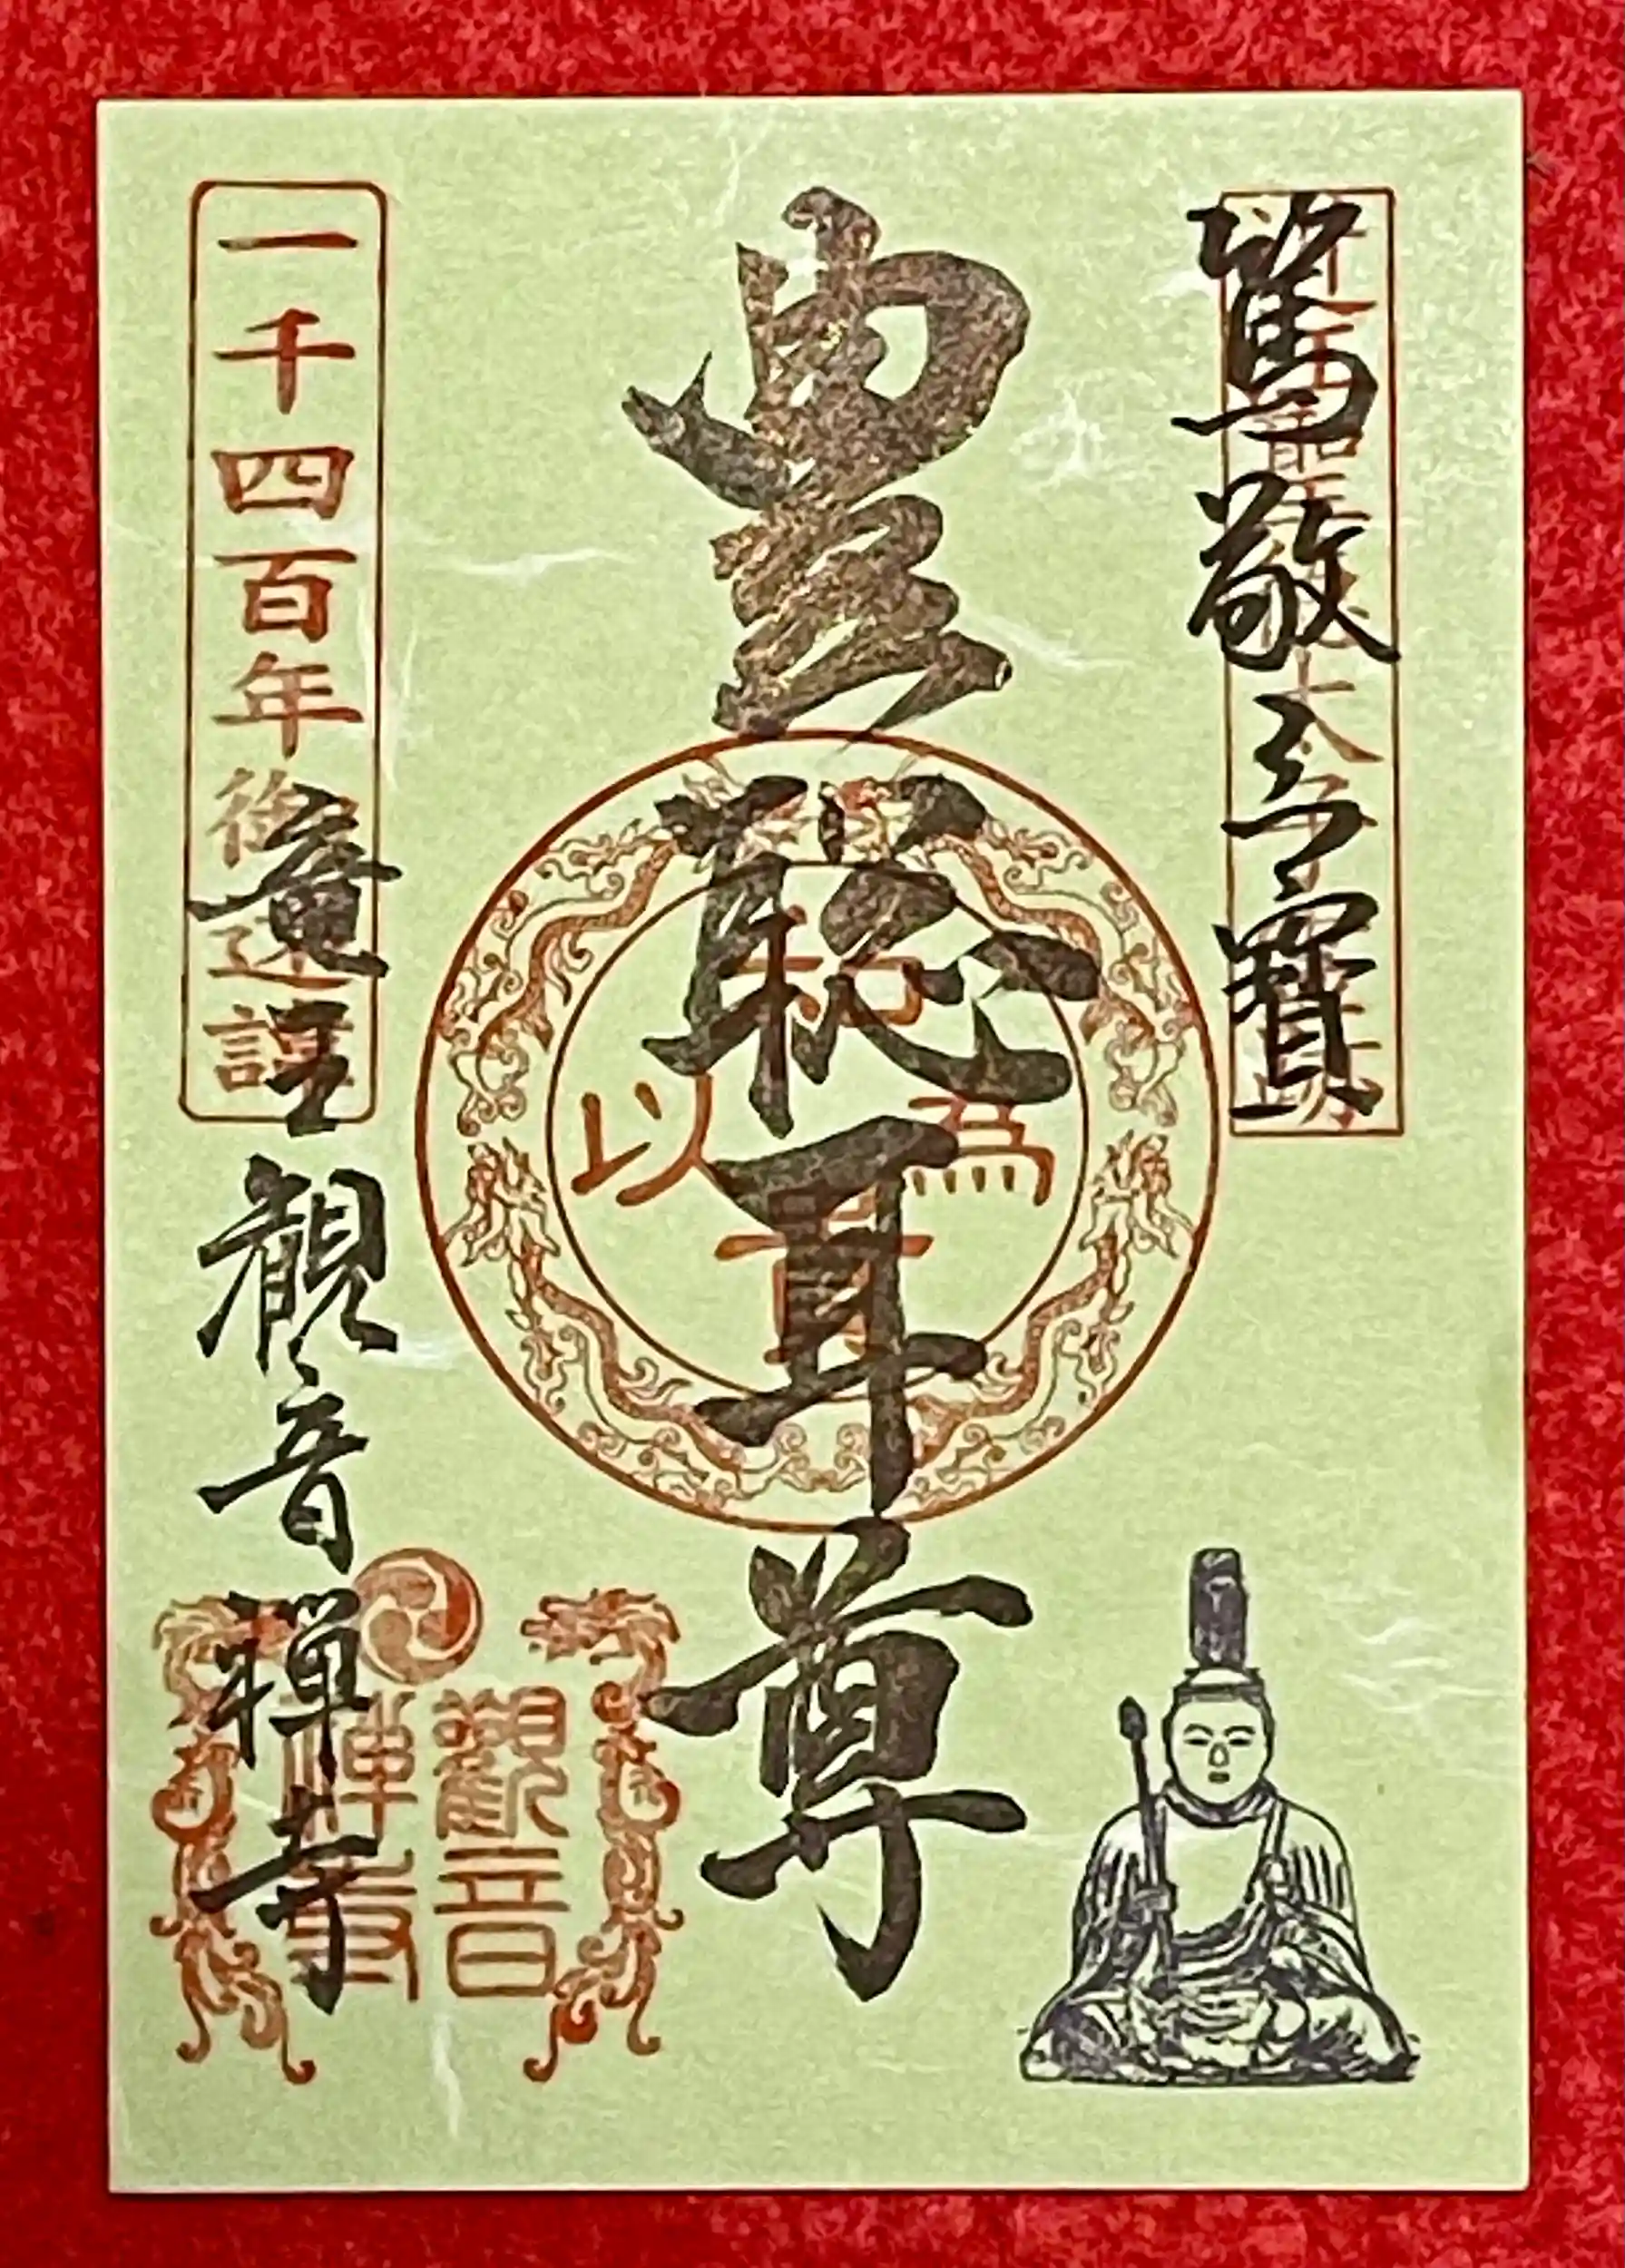 篤敬三寶
豊聡耳尊
以和為貴
一千四百年御遠諱
竜王 観音禅寺
觀音禪寺